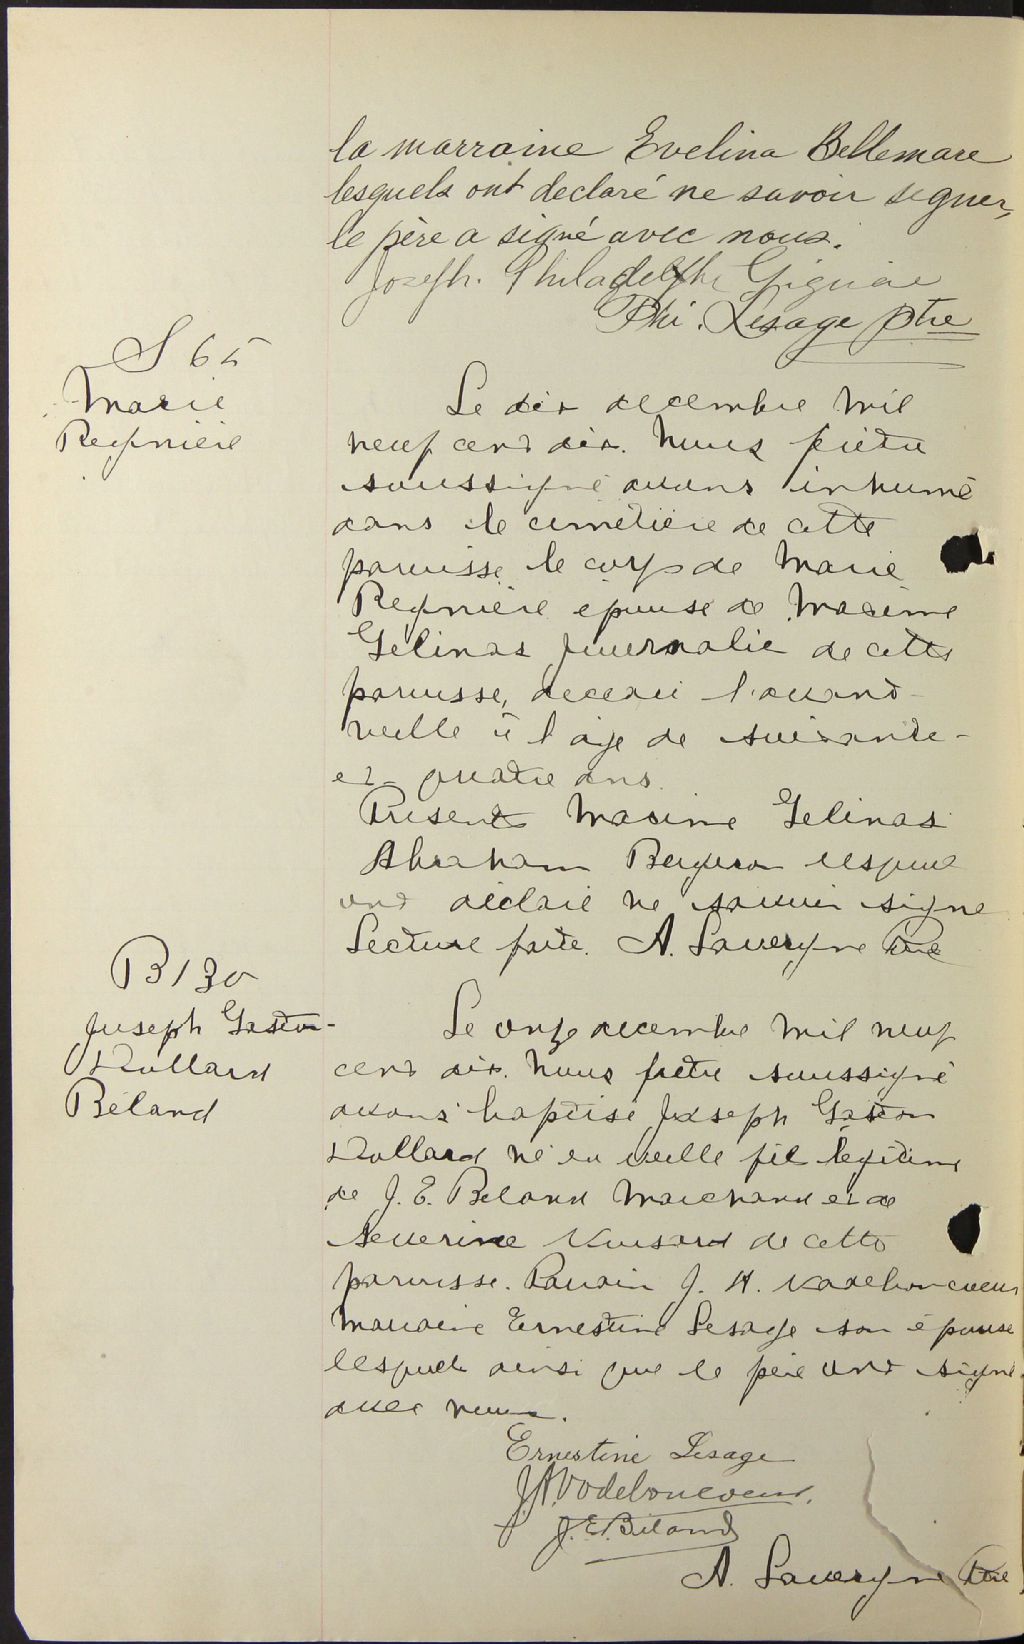 la marraine Evelina Bellemare
lesquels ont declaré ne savoir signer,
le père a signé avec nous.
Joseph. Philadelphe Gignac
Phi. Lesage ptre
S 65
Marie
Reynière
Le dix decembre mil
neuf cent dix. Nous prêtre
soussigné avons inhumé
dans le cimetière de cette
paroisse le corps de Marie
Reynière epouse de Maxime
Gelinas journalie de cette
paroisse, decedé l'avant-
veille à l'age de soixante-
et-quatre ans.
Present Maxime Gelinas
Abraham Bergeron lesquel
ont déclaré ne savoir signe
Lecture faite. A. Lavergne Ptre
B130
Joseph Gaston-
Dollard
Béland
Le onze decembre mil neuf
cent dix. Nous prêtre soussigné
avons baptisé Joseph Gaston
Dollard né la veille fil légitime
de J. E. Beland Marchand et de
Severine Vinsard de cette
paroisse. Parrain J. H. Vadeboncoeur
Marraine Ernestine Lesage son épouse
lesquels ainsi que le père ont signé
avec nous.
Ernestine Lesage
J.H. Vadeboncoeur.
J. E. Béland
A. Lavergne Ptre